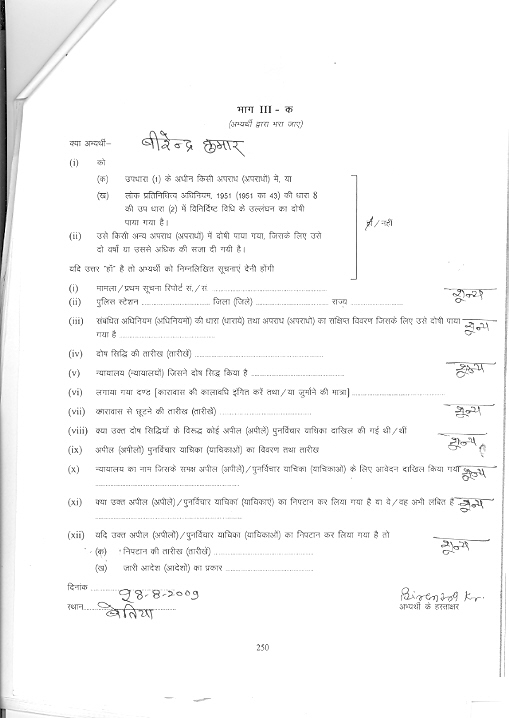 भाग III - क
(अभ्यर्थी द्वारा भरा जाए)
क्या अभ्यर्थी– बीरेन्द्र कुमार
(i) को
(क) उपधारा (1) के अधीन किसी अपराध (अपराधों) में, या
(ख) लोक प्रतिनिधित्व अधिनियम, 1951 (1951 का 43) की धारा 8
की उप धारा (2) में विनिर्दिष्ट विधि के उल्लंघन का दोषी
पाया गया है।
हाँ / नहीं
(ii) उसे किसी अन्य अपराध (अपराधों) में दोषी पाया गया, जिसके लिए उसे
दो वर्षों या उससे अधिक की सजा दी गयी है।
यदि उत्तर "हाँ" है तो अभ्यर्थी को निम्नलिखित सूचनाएं देनी होंगी
(i) मामला / प्रथम सूचना रिपोर्ट स. / सं. शून्य
(ii) पुलिस स्टेशन जिला (जिले) राज्य
(iii) संबंधित अधिनियम (अधिनियमों) की धारा (धाराये) तथा अपराध (अपराधों) का संक्षिप्त विवरण जिसके लिए उसे दोषी पाया शून्य
गया है
(iv) दोष सिद्धि की तारीख (तारीखें)
(v) न्यायालय (न्यायालयों) जिसने दोष सिद्ध किया है शून्य
(vi) लगाया गया दण्ड [कारावास की कालावधि इंगित करें तथा / या जुर्माने की मात्रा]
(vii) कारावास से छूटने की तारीख (तारीखें) शून्य
(viii) क्या उक्त दोष सिद्धियों के विरूद्ध कोई अपील (अपीलें) पुनर्विचार याचिका दाखिल की गई थी / थीं शून्य
(ix) अपील (अपीलों) पुनर्विचार याचिका (याचिकाओं) का विवरण तथा तारीख
(x) न्यायालय का नाम जिसके समक्ष अपील (अपीलें) / पुनर्विचार याचिका (याचिकाओं) के लिए आवेदन दाखिल किया गया शून्य
(xi) क्या उक्त अपील (अपीलें) / पुनर्विचार याचिका (याचिकाएं) का निपटान कर लिया गया है या वे / वह अभी लंबित है शून्य
(xii) यदि उक्त अपील (अपीलों) / पुनर्विचार याचिका (याचिकाओं) का निपटान कर लिया गया है तो शून्य
(क) निपटान की तारीख (तारीखें)
(ख) जारी आदेश (आदेशों) का प्रकार
दिनांक 28-8-2009
स्थान बेतिया
Birendra Kr.
अभ्यर्थी के हस्ताक्षर
250